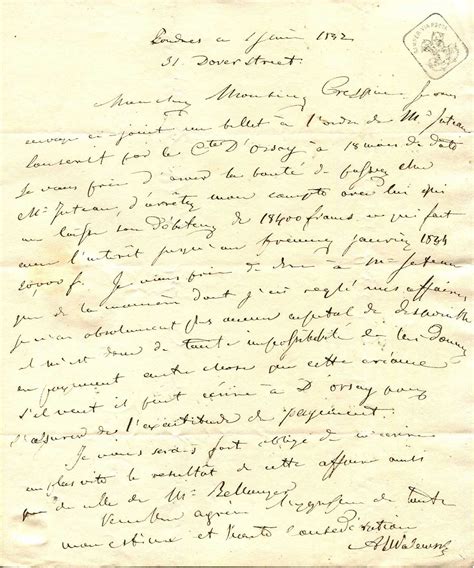 Londres ce 1 juin 1832
31 Dover Street
Mon cher Monsieur Crespin, je vous
envoye ci joint un billet à l'ordre de Mr Juteau
souscrit par le Cte D'Orsay à 18 mois de date
Je vous prie d'avoir la bonté de passer chez
Mr Juteau, d'arrêter mon compte avec lui qui
me laisse son débiteur de 18400 francs ce qui fait
avec l'intérêt jusqu'au premier janvier 1834
20,000 f. Je vous prie de dire à Mr Juteau
que de la manière dont j'ai réglé mes affaires
je n'ai absolument plus aucun capital de disponible
il m'est donc de toute impossibilité de lui donner
en payement autre chose que cette créance
s'il veut il peut écrire à D'Orsay pour
s'assurer de l'exactitude de payement.
Je vous serais fort obligé de m'écrire
au plus vite le résultat de cette affaire ainsi
que de celle de Mr Bellanger
Veuillez agréer l'expression de toute
mon estime et haute considération
AWalewski